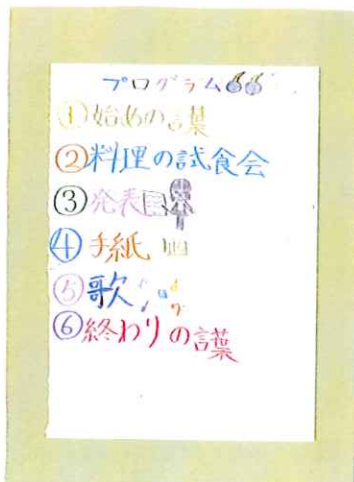 プログラム
①始めの言葉
②料理の試食会
③発表
④手紙
⑤歌
⑥終わりの言葉